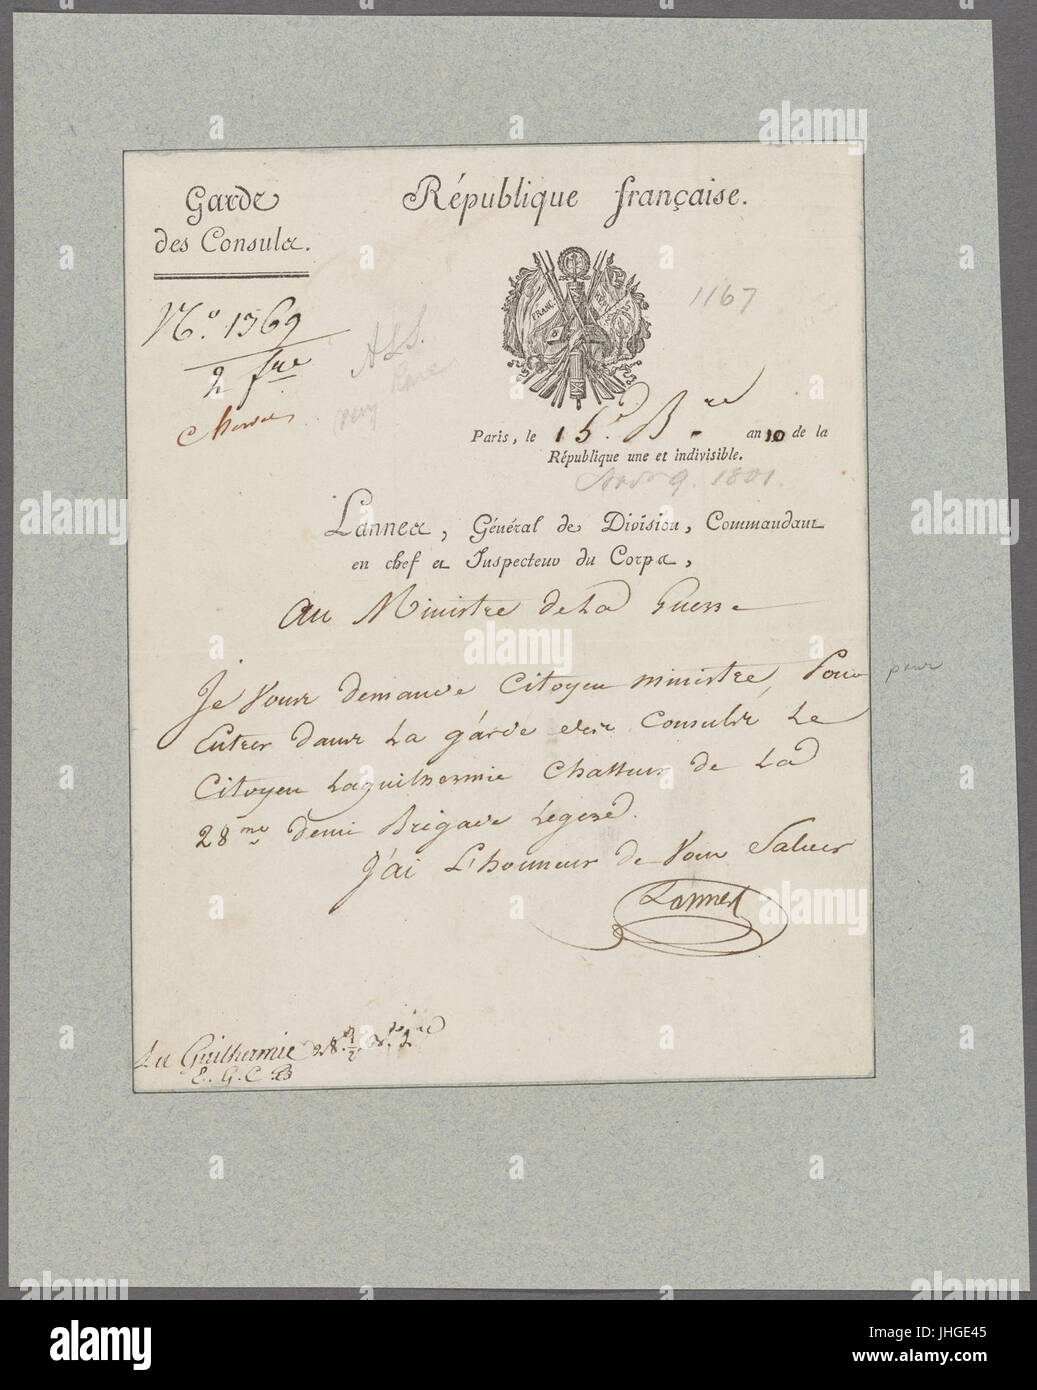 Garde
des Consuls.
République française.
N.° 1369
2 fre
1167
ALS.
very
Rare
FRANC
Paris, le 15. Bre an 10 de la
République une et indivisible.
Nov 9. 1801.
Lannes, Général de Division, Commandant
en chef et Inspecteur du Corps,
Au Ministre de La Guerre
Je vous demande Citoyen ministre, Pour
pour
Entrer dans La garde des Consuls Le
Citoyen Laguilhermie Chasseur de La
28me demi Brigade Legere.
J'ai L'honneur de vous Saluer
Lannes
La Guilhermie 28.
E. G. C. B
alamy
alamy stock photo
Image ID: JHGE45
www.alamy.com